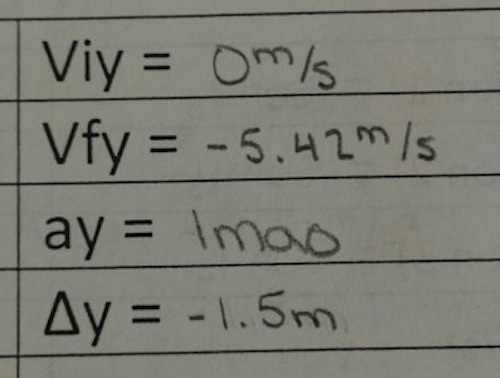 Viy = 0 m/s
Vfy = -5.42 m/s
ay = lmao
Δy = -1.5m